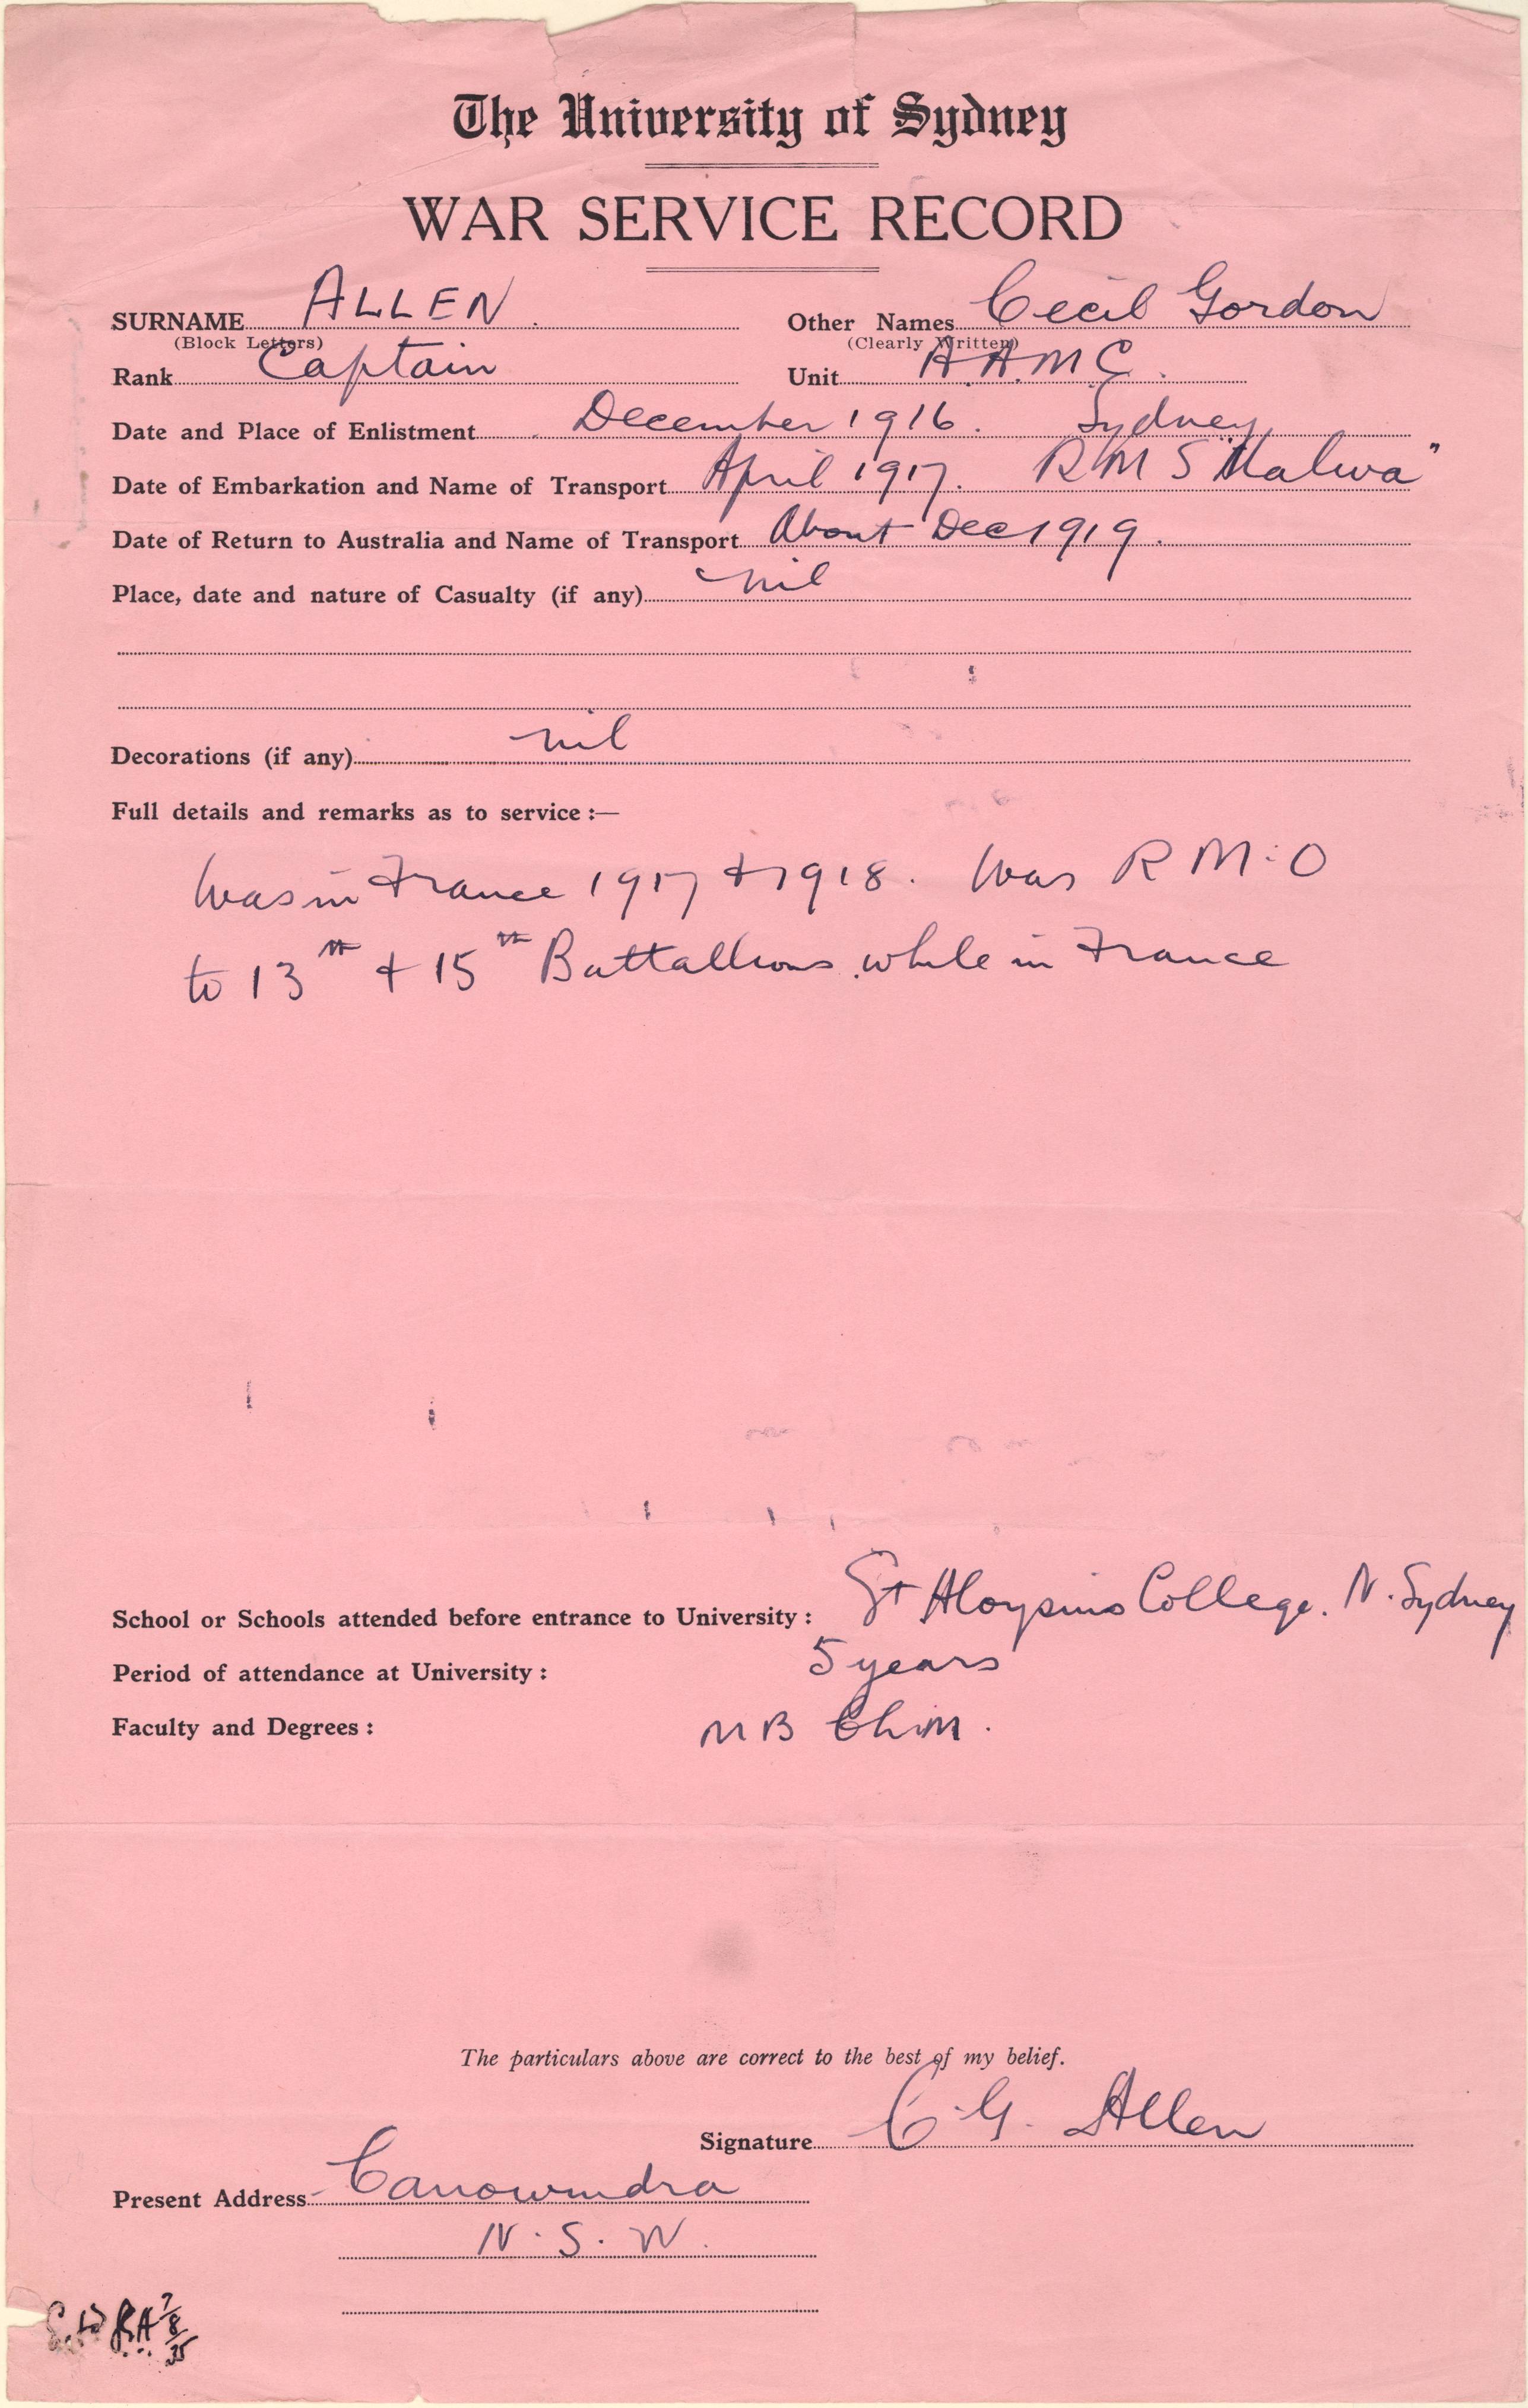 The University of Sydney
WAR SERVICE RECORD
SURNAME ALLEN. Other Names Cecil Gordon
(Block Letters) (Clearly Written)
Rank Captain Unit A.A.M.C.
Date and Place of Enlistment December 1916. Sydney
Date of Embarkation and Name of Transport April 1917. RMS "Malwa"
Date of Return to Australia and Name of Transport About Dec 1919.
Place, date and nature of Casualty (if any) nil
Decorations (if any) nil
Full details and remarks as to service :—
Was in France 1917 + 1918. Was R M.O
to 13th + 15th Battallions while in France
School or Schools attended before entrance to University : St Aloysius College. N. Sydney
Period of attendance at University : 5 years
Faculty and Degrees : MB ChM.
The particulars above are correct to the best of my belief.
Signature C G. Allen
Present Address Canowindra
N. S. W.
7/8/35